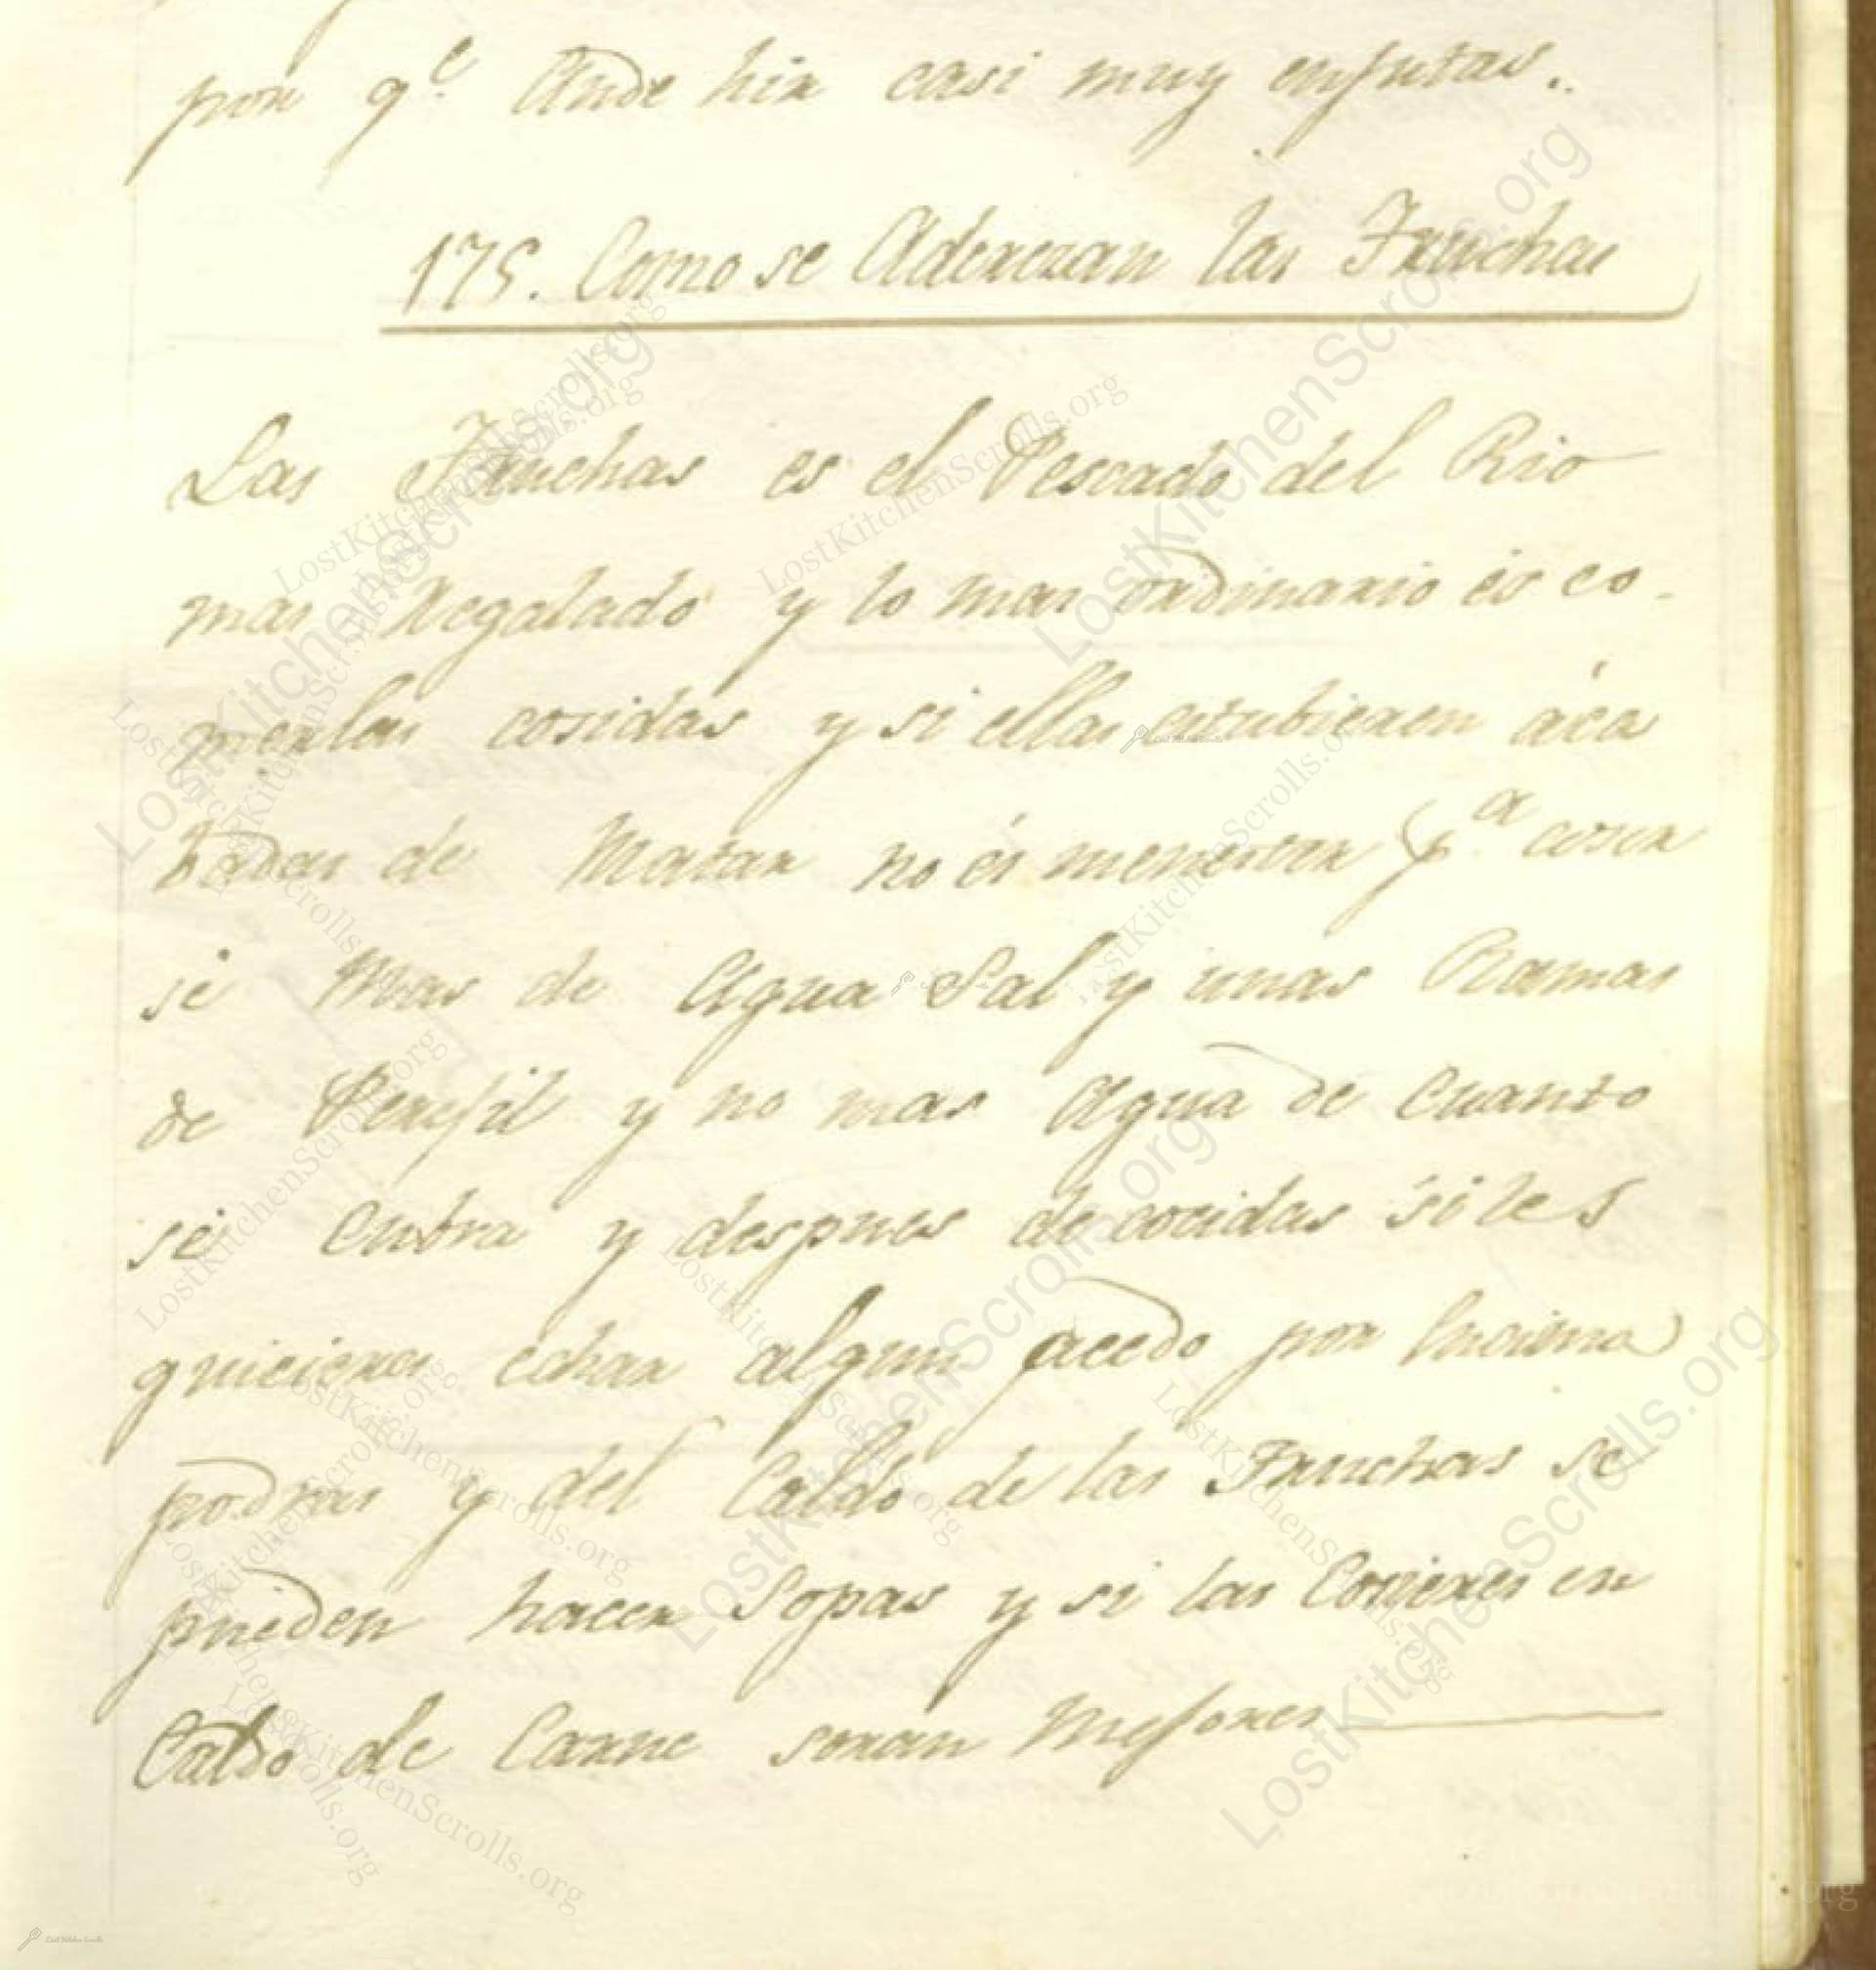 por q.e Ande hir casi muy enjutas..
175. Como se Aderezan las Truchas
Las Truchas es el Pescado del Rio
mas Regalado y lo mas ordinario és co-
merlas cosidas y si ellas estubieren áca
badas de Matar no és menester p.a coser
sé Mas de Agua Sal y unas Ramas
de Peregil y no mas Agua de Cuanto
sé Cubra y despues de cocidas si les
quicieres echar algun acedo por Encima
podras y del Caldo de las Truchas se
pueden hacer Sopas y si las Cosieres en
Caldo de Carne seran Mejores